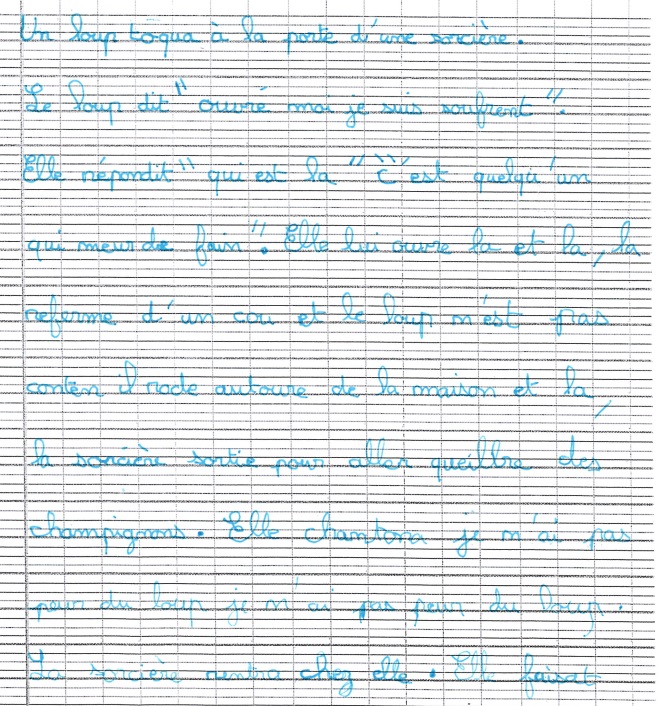 Un loup toqua à la porte d'une sorcière.
Le loup dit " ouvré moi je suis soufrent ".
Elle répondit " qui est la " " C'est quelqu'un
qui meur de fain ". Elle lui ouvre la et la, la
referme d'un cou et le loup n'est pas
conten il rode autoure de la maison et la,
la sorcière sortie pour aller queillre des
champignons. Elle chantona je n'ai pas
peur du loup je n'ai pas peur du loup.
La sorcière rentra chez elle. Elle faisat